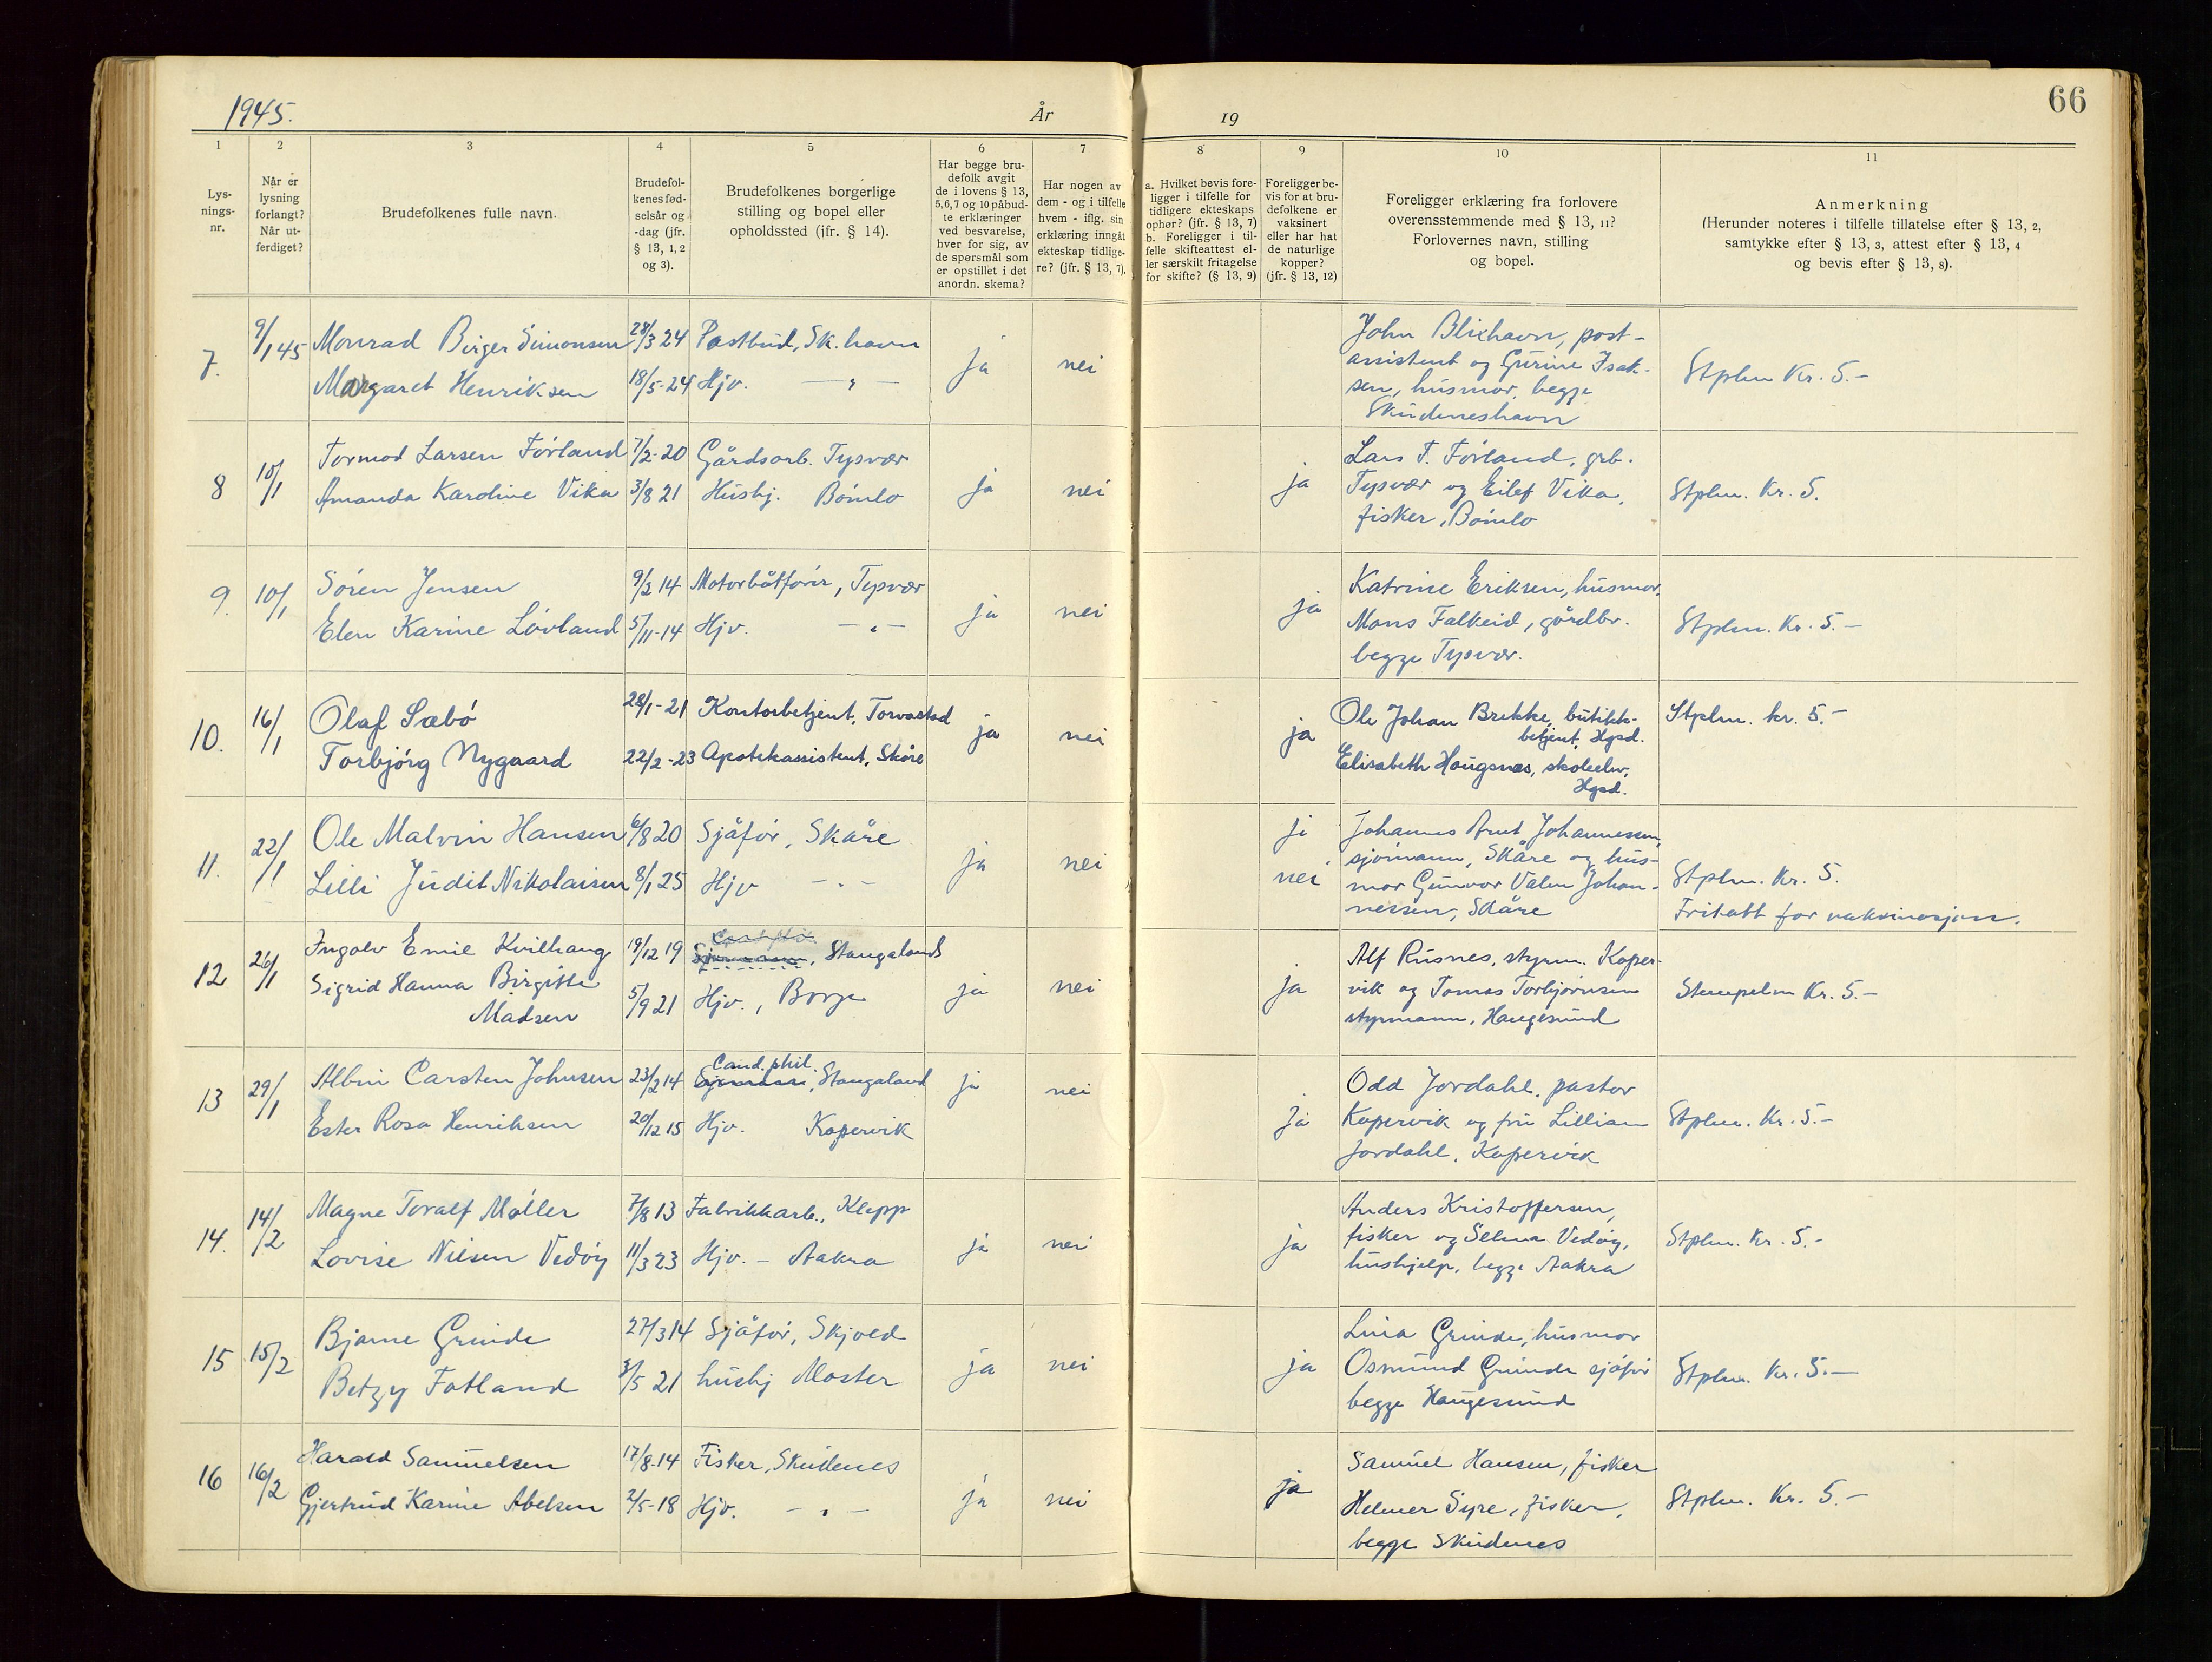 66
1945.
År
19
1
2
3
4
5
6
7
8
9
10
11
Lys-
nings-
nr.
Når er
lysning
forlangt?
Når ut-
ferdiget?
Brudefolkenes fulle navn.
Brudefol-
kenes fød-
selsår og
-dag (jfr.
§ 13, 1, 2
og 3).
Brudefolkenes borgerlige
stilling og bopel eller
opholdssted (jfr. § 14).
Har begge bru-
defolk avgit
de i lovens § 13,
5,6,7 og 10 påbud-
te erklæringer
ved besvarelse,
hver for sig, av
de spørsmål som
er opstillet i det
anordn. skema?
Har nogen av
dem - og i tilfelle
hvem - iflg. sin
erklæring inngåt
ekteskap tidlige-
re? (jfr. § 13, 7).
a. Hvilket bevis fore-
ligger i tilfelle for
tidligere ekteskaps
ophør? (jfr. § 13, 7)
b. Foreligger i til-
felle skifteattest el-
ler særskilt fritagelse
for skifte? (§ 13, 9)
Foreligger be-
vis for at bru-
defolkene er
vaksinert
eller har hat
de naturlige
kopper?
(jfr. § 13, 12)
Foreligger erklæring fra forlovere
overensstemmende med § 13, 11?
Forlovernes navn, stilling
og bopel.
Anmerkning
(Herunder noteres i tilfelle tillatelse efter § 13, 2,
samtykke efter § 13, 3, attest efter § 13, 4
og bevis efter § 13, 8).
7. 9/1 45 Monrad Birger Simonsen 28/3 24 Postbud, Sk.havn ja nei
Margaret Henriksen 18/5-24 Hjv. — " —
John Blixhavn, post-
assistent og Gurine Isak-
sen, husmor, begge
Skudeneshavn
Stplm Kr. 5.-
8 10/1 Tormod Larsen Førland 7/2-20 Gårdsarb. Tysvær ja nei ja
Amanda Karoline Vika 3/8 21 Hushj. Bømlo
Lars T. Førland, grb.
Tysvær og Eilef Vika,
fisker, Bømlo
Stplm. Kr. 5.
9. 10/1 Søren Jensen 9/3 14 Motorbåtfører, Tysvær ja nei ja
Elen Karine Løvland 5/11-14 Hjv. — " —
Katrine Eriksen, husmor,
Mons Falkeid, gårdbr.
begge Tysvær.
Stplm. Kr. 5.—
10. 16/1 Olaf Sæbø 28/1-21 Kontorbetjent, Torvastad ja nei ja
Torbjørg Nygaard 22/2-23 Apotekassistent, Skåre
Ole Johan Brekke, butikk-
betjent, Hgsd.
Elisabeth Haugsnes, skoleelev,
Hgsd.
Stplm. kr. 5.-
11. 22/1 Ole Malvin Hansen 6/8 20 Sjåfør, Skåre ja nei ja
Lilli Judit Nikolaisen 8/1 25 Hjv — " — nei
Johannes Arnt Johannessen,
sjømann, Skåre og hus-
mor Gunvor Valen Johan-
nessen, Skåre
Stplm. Kr. 5.
Fritatt for vaksinasjon.
12 26/1 Ingolv Emil Kvilhaug 19/12 19 , Stangaland ja nei ja
Sigrid Hanna Birgitte
Madsen 5/9 21 Hjv., Borge
Alf Rusnes, styrm. Koper-
vik og Tomas Torbjørnsen
styrmann, Haugesund
Stempelm Kr. 5.-
13 29/1 Albin Carsten Johnsen 23/2 14 Cand. phil.
Sjømann, Stangaland ja nei ja
Ester Rosa Henriksen 20/12 15 Hjv. Kopervik
Odd Jordahl, pastor
Kopervik og fru Lillian
Jordahl, Kopervik
Stplm. Kr. 5.-
14. 14/2 Magne Toralf Møller 7/8 13 Fabrikkarb., Klepp ja nei ja
Lovise Nilsen Vedøy 11/3 23 Hjv. - Aakra
Anders Kristoffersen,
fisker og Selma Vedøy,
hushjelp, begge Aakra
Stplm. Kr. 5.-
15 15/2 Bjarne Grinde 27/3 14 Sjåfør, Skjold ja nei ja
Betzy Fatland 3/5 21 hushj Moster
Lina Grinde, husmor
Osmund Grinde sjåfør
begge Haugesund
Stplm. Kr. 5.—
16 16/2 Harald Samuelsen 17/8-14 Fisker, Skudenes ja nei ja
Gjertrud Karine Abelsen 2/5-18 Hjv. — " —
Samuel Hansen, fisker
Helmer Syre, fisker,
begge Skudenes
Stplm. Kr. 5.-